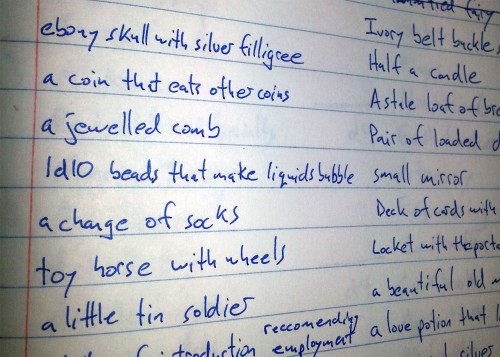 ebony skull with silver filligree
a coin that eats other coins
a jewelled comb
1d10 beads that make liquids bubble
a change of socks
toy horse with wheels
a little tin soldier
introduction reccomending employment
fairy
Ivory belt buckle
Half a candle
A stale loaf of
Pair of loaded
small mirror
Deck of cards with
Locket with the
a beautiful old
a love potion that
silver